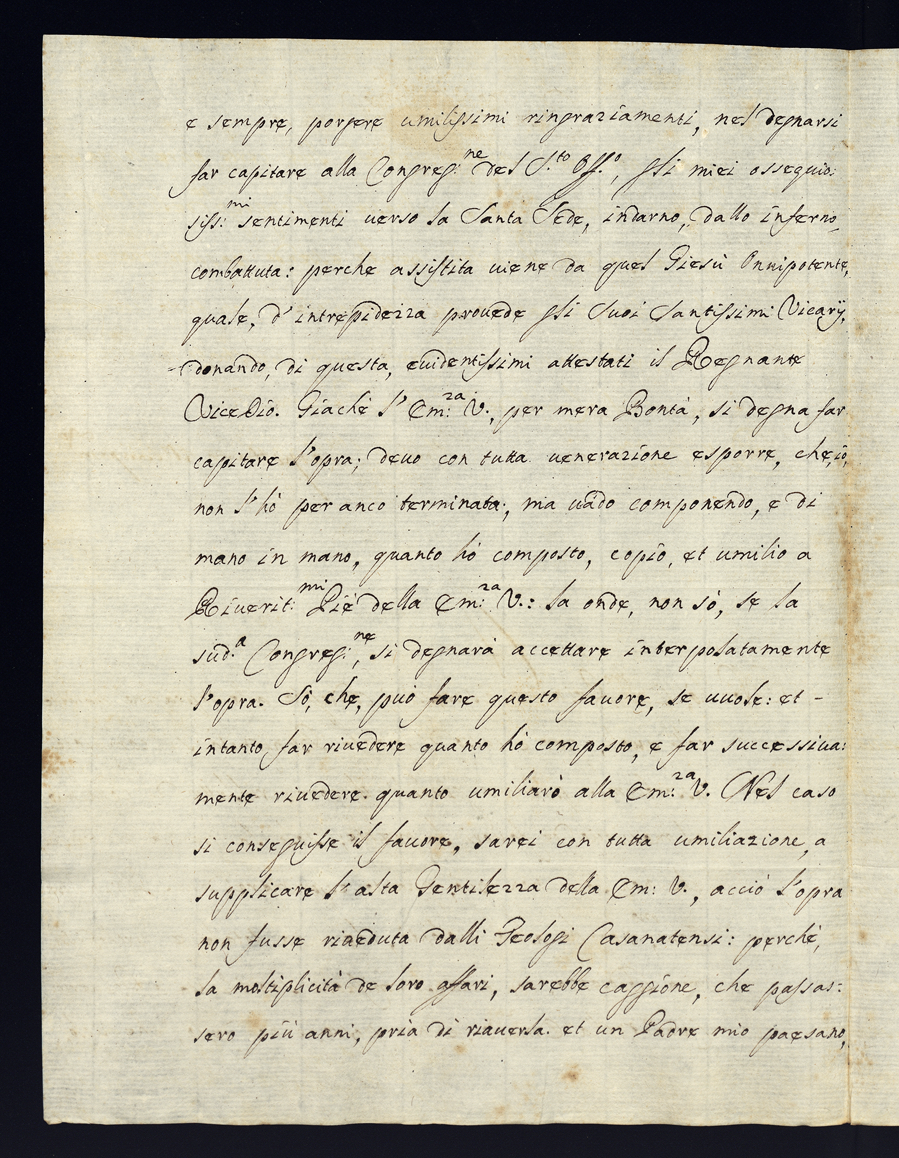 e sempre, porgere umilissimi ringraziamenti, nel degnarsi
far capitare alla Congreg:ne del S.to Off.o, gli miei ossequio:
siss:mi sentimenti verso la Santa Sede, indarno, dallo inferno,
combattuta: perche assistita viene da quel Giesù Onnipotente,
quale, d'intrepidezza provede gli Suoi Santissimi Vicarÿ,
donando, di questa, evidentissimi attestati il Regnante
ViceDio. Giachè l'Em:za V., per mera Bontà, si degna far
capitare l'opra; devo con tutta venerazione esporre, che, io,
non l'hò per anco terminata; ma vado componendo, e di
mano in mano, quanto hò composto, copio, et umilio a
Riverit:mi Piè della Em:za V.: la onde, non sò, se la
sud.a Congreg:ne, si degnarà accettare interpolatamente
l'opra. Sò, che, può fare questo favore, se vuole: et -
intanto, far rivedere quanto hò composto, e far successiva:
mente rivedere quanto umiliarò alla Em:za V. Nel caso
si conseguisse il favore, sarei con tutta umiliazione, a
supplicare l'alta Gentilezza della Em: V., acciò l'opra
non fusse riveduta dalli Teologi Casanatensi: perchè,
la moltiplicità de loro affari, sarebbe caggione, che passas:
sero più anni, pria di riaverla. et un Padre mio paesano,